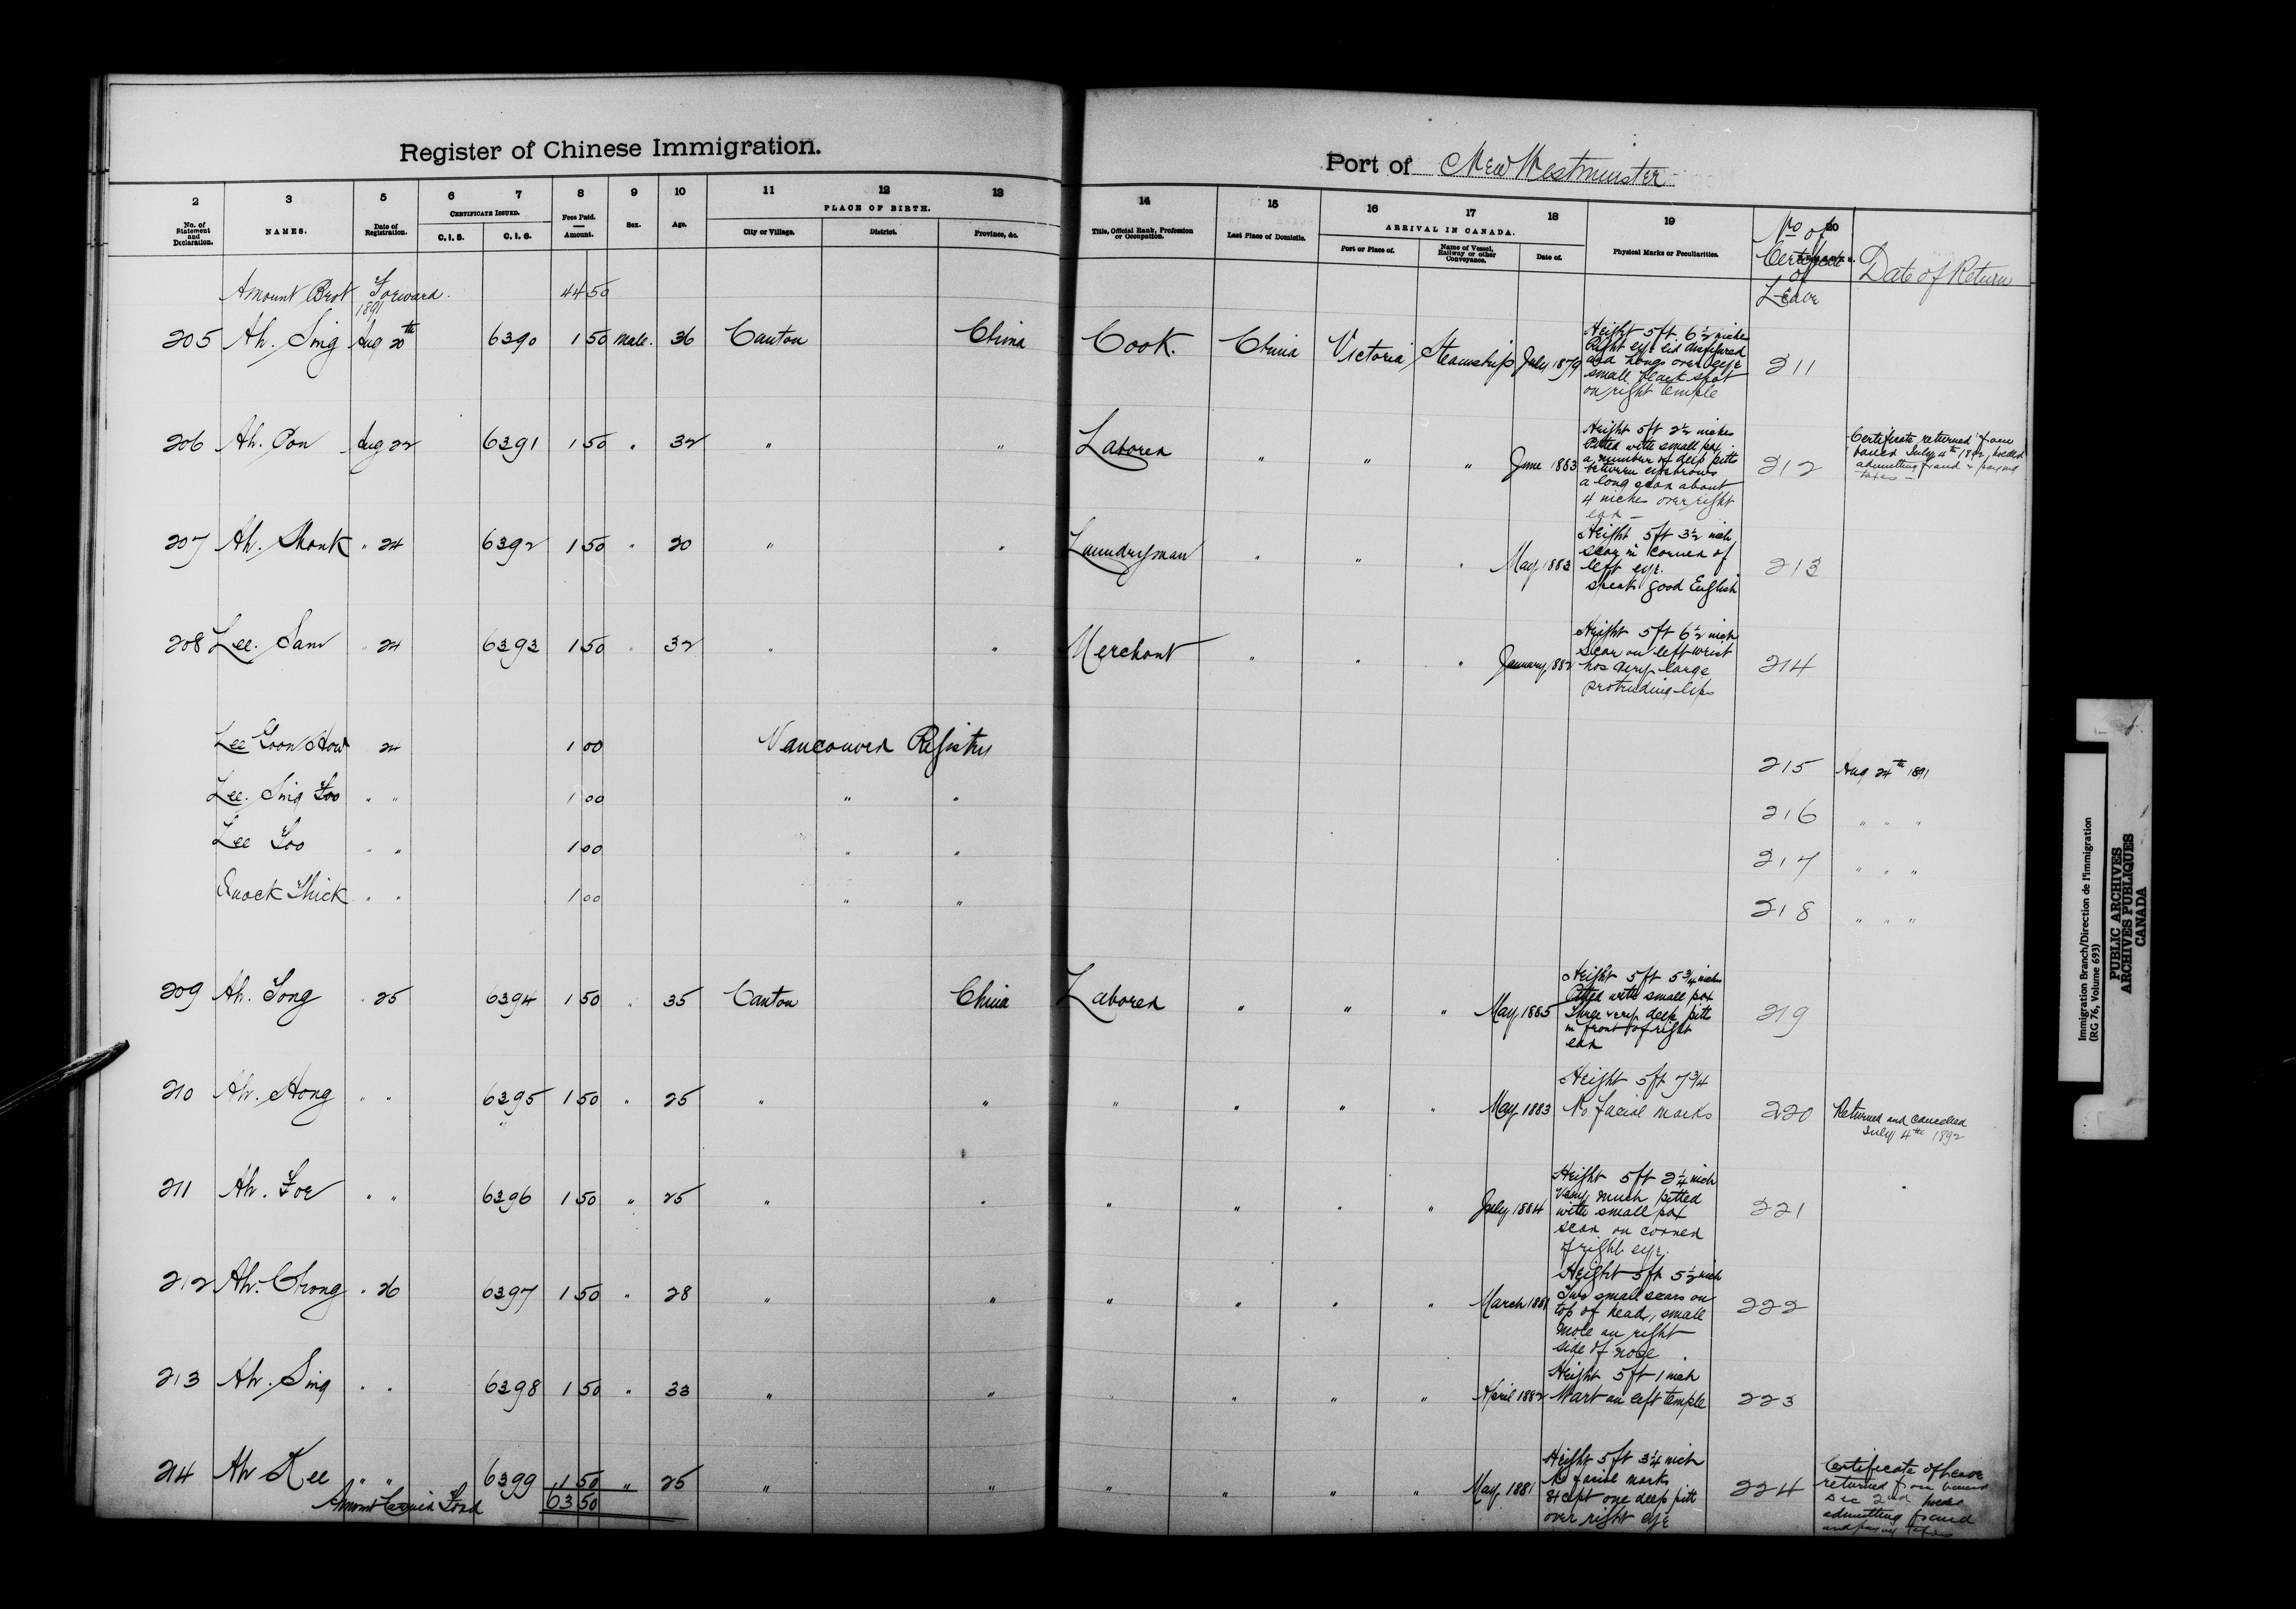 Register of Chinese Immigration.
Port of New Westminster
2 3 5 6 7 8 9 10 11 12 13 14 15 16 17 18 19 20
No. of Statement and Declaration. NAMES. Date of Registration. CERTIFICATE ISSUED. C.I.5. C.I.6. Fees Paid. Amount. Sex. Age. PLACE OF BIRTH. City or Village. District. Province, &c. Title, Official Rank, Profession or Occupation. Last Place of Domicile. ARRIVAL IN CANADA. Port or Place of. Name of Vessel, Railway or other Conveyance. Date of. Physical Marks or Peculiarities. No of Certificate of Leave Date of Return
Amount Brot Forward. 44 50
1891
205 Ah. Sing Aug 20th 6390 1 50 Male. 36 Canton China Cook. China Victoria Steamship July 1879 Height 5ft. 6½ inches 211
Right eye lid disfigured
and hangs over eye
small black spot
on right temple
206 Ah. Pon Aug 22 6391 1 50 " 32 " " Laborer " " " June 1883 Height 5ft 2½ inches 212 Certificate returned from
Pitted with small pox
a number of deep pitts
between eyebrows
a long scar about
4 inches over right
ear —
July 4th 1892
admitting fraud & paying
taxes —
207 Ah. Shonk " 24 6392 1 50 " 20 " " Laundryman " " " May 1883 Height 5ft 3½ inch 213
scar in corner of
left eye.
speak good English
208 Lee. Sam " 24 6393 1 50 " 32 " " Merchant " " " January 1882 Height 5ft 6½ inch 214
scar on left wrist
has very large
protruding lips
Lee Goon How 24 1 00 Vancouver Registry 215 Aug 24th 1891
Lee. Sing Foo " " 1 00 " " 216 " " "
Lee Foo " " 1 00 " " 217 " " "
Quock Thick " " 1 00 " " 218 " " "
209 Ah. Song " 25 6394 1 50 " 35 Canton China Laborer " " " May 1885 Height 5ft 5¾ inch 219
Pitted with small pox
Three very deep pitts
in front of right
ear
210 Ah. Hong " " 6395 1 50 " 25 " " " " " " May 1883 Height 5ft 7¾ 220 Returned and cancelled
No facial marks July 4th 1892
211 Ah. Foe " " 6396 1 50 " 25 " " " " " " July 1884 Height 5ft 2¼ inch 221
Very much pitted
with small pox
scar on corner
of right eye.
212 Ah. Chong " 26 6397 1 50 " 28 " " " " " " March 1881 Height 5ft 5½ inch 222
Two small scars on
top of head, small
mole on right
side of nose
213 Ah. Sing " " 6398 1 50 " 33 " " " " " " April 1882 Height 5ft 1 inch 223
Wart on left temple
214 Ah Kee " " 6399 1 50 " 25 " " " " " " May 1881 Height 5ft 3¼ inch 224 Certificate of Leave
No facial marks
Except one deep pitt
over right eye
returned from
Dec 2nd
admitting fraud
and paying taxes
Amount Carried Ford 63 50
Immigration Branch/Direction de l'immigration
(RG 76, Volume 693)
PUBLIC ARCHIVES
ARCHIVES PUBLIQUES
CANADA